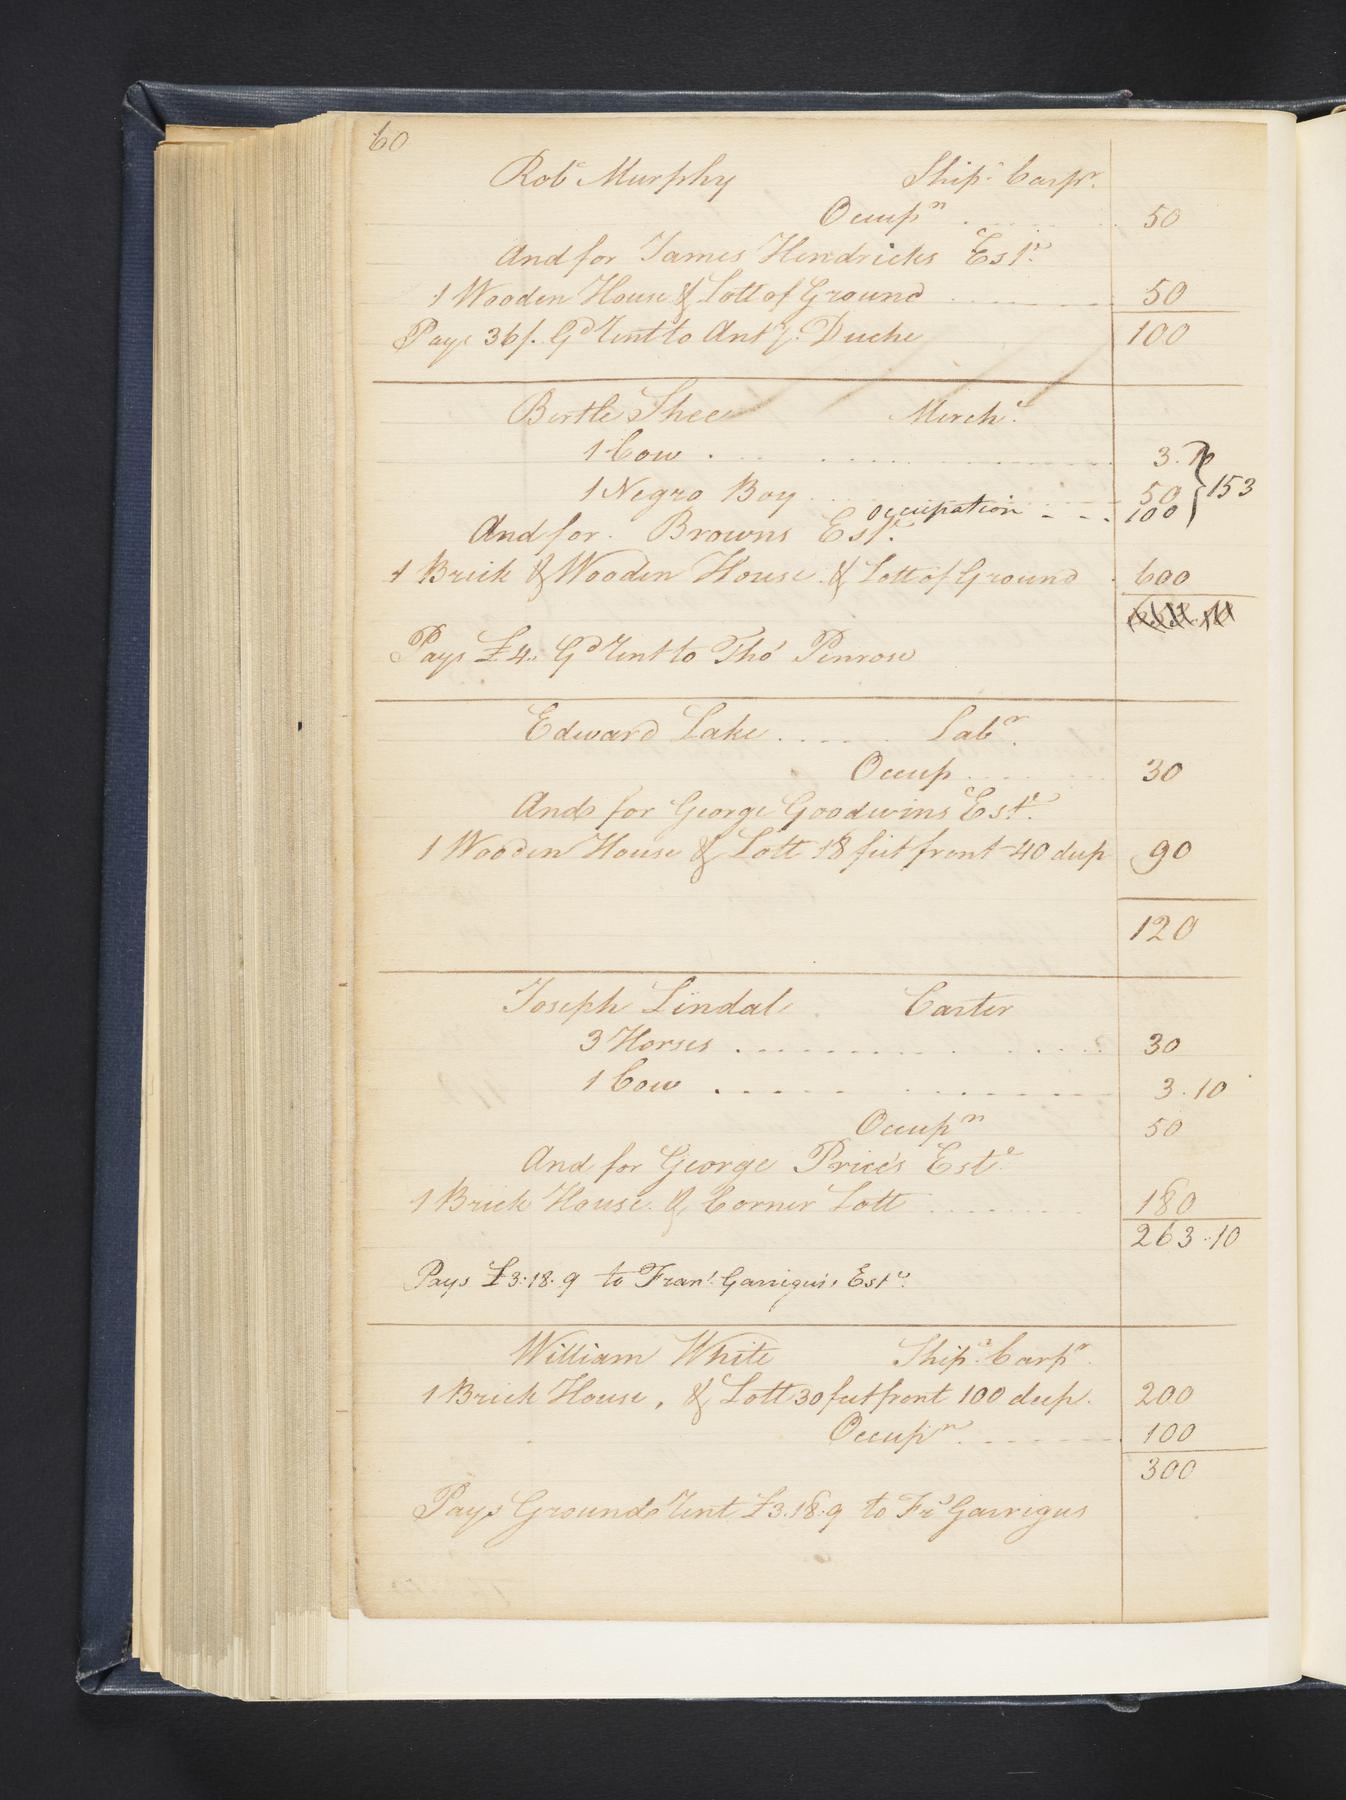 60
Robt Murphy Ship Carpr.
Occupn 50
And for James Hendricks Este
1 Wooden House & Lott of Ground 50
Pays 36/. Gd Rent to Anty. Duche 100
Bertle Shee Mercht
1 Cow 3.10
1 Negro Boy 50 } 153
Occupation 100
And for Browns Este.
1 Brick & Wooden House & Lott of Ground 600
Pays £4. Gd Rent to Tho' Penrose
Edward Lake Labr.
Occup 30
And for George Goodwins Este.
1 Wooden House & Lott 18 feet front 40 deep 90
120
Joseph Lindal Carter
3 Horses 30
1 Cow 3.10
Occupn 50
And for George Price's Este
1 Brick House & Corner Lott 180
263.10
Pays £3.18.9 to Frans. Garrigus's Este.
William White Ship Carpr.
1 Brick House, & Lott 30 feet front 100 deep. 200
Occupn 100
300
Pays Ground Rent £3.18.9 to Frs Garrigus